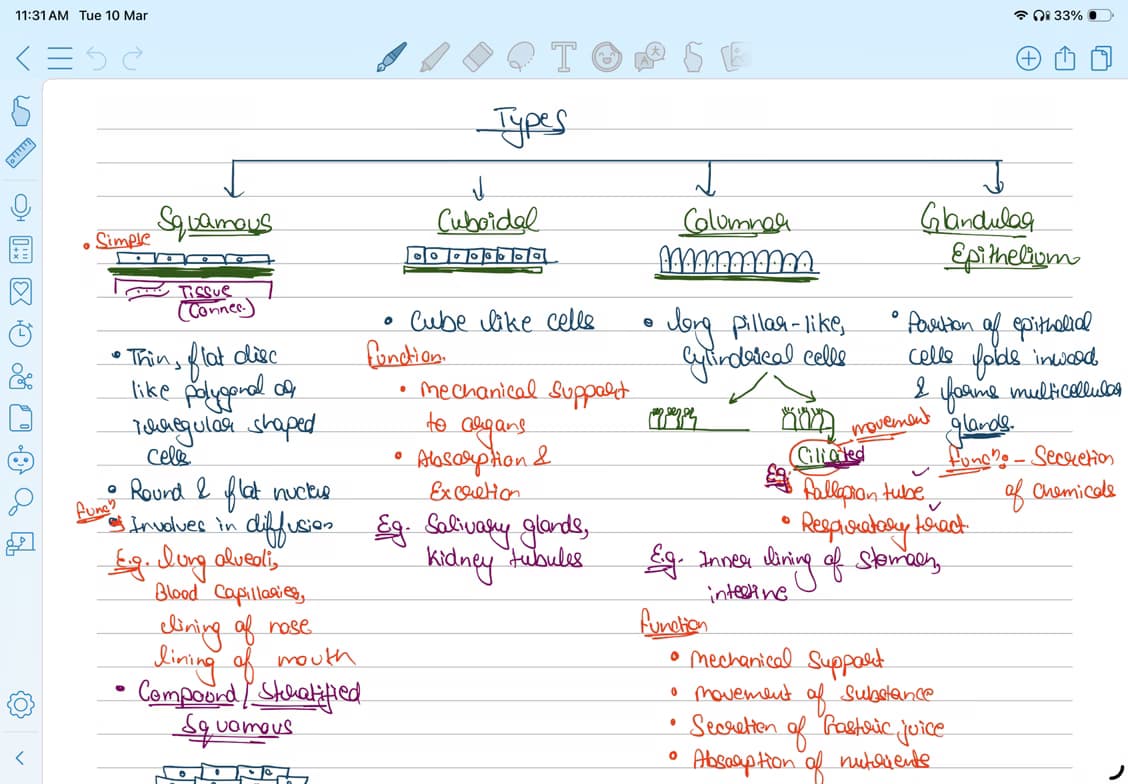 11:31 AM Tue 10 Mar
33%
Types
Squamous
Simple
Tissue
(Connec.)
• Thin, flat disc
like polygonal or
irregular shaped
cells
• Round & flat nucleus
Funcⁿ
Involves in diffusion
E.g. lung alveoli,
Blood Capillaries,
lining of nose
lining of mouth
• Compound / Stratified
Squamous
Cuboidal
• Cube like cells
Function.
• Mechanical Support
to organs
• Absorption &
Excretion
Eg. Salivary glands,
Kidney tubules
Columnar
• long pillar-like,
Cylinderical cells
movement
Ciliated
Eg:
Fallopian tube
• Respiratory tract.
E.g. Inner lining of Stomach,
intestine
Function
• Mechanical Support
• Movement of Substance
• Secretion of Gastric juice
• Absorption of nutrients
Glandular
Epithelium
• Portion of epithelial
cells folds inward
& forms multicellular
glands.
Funcⁿ: - Secretion
of Chemicals